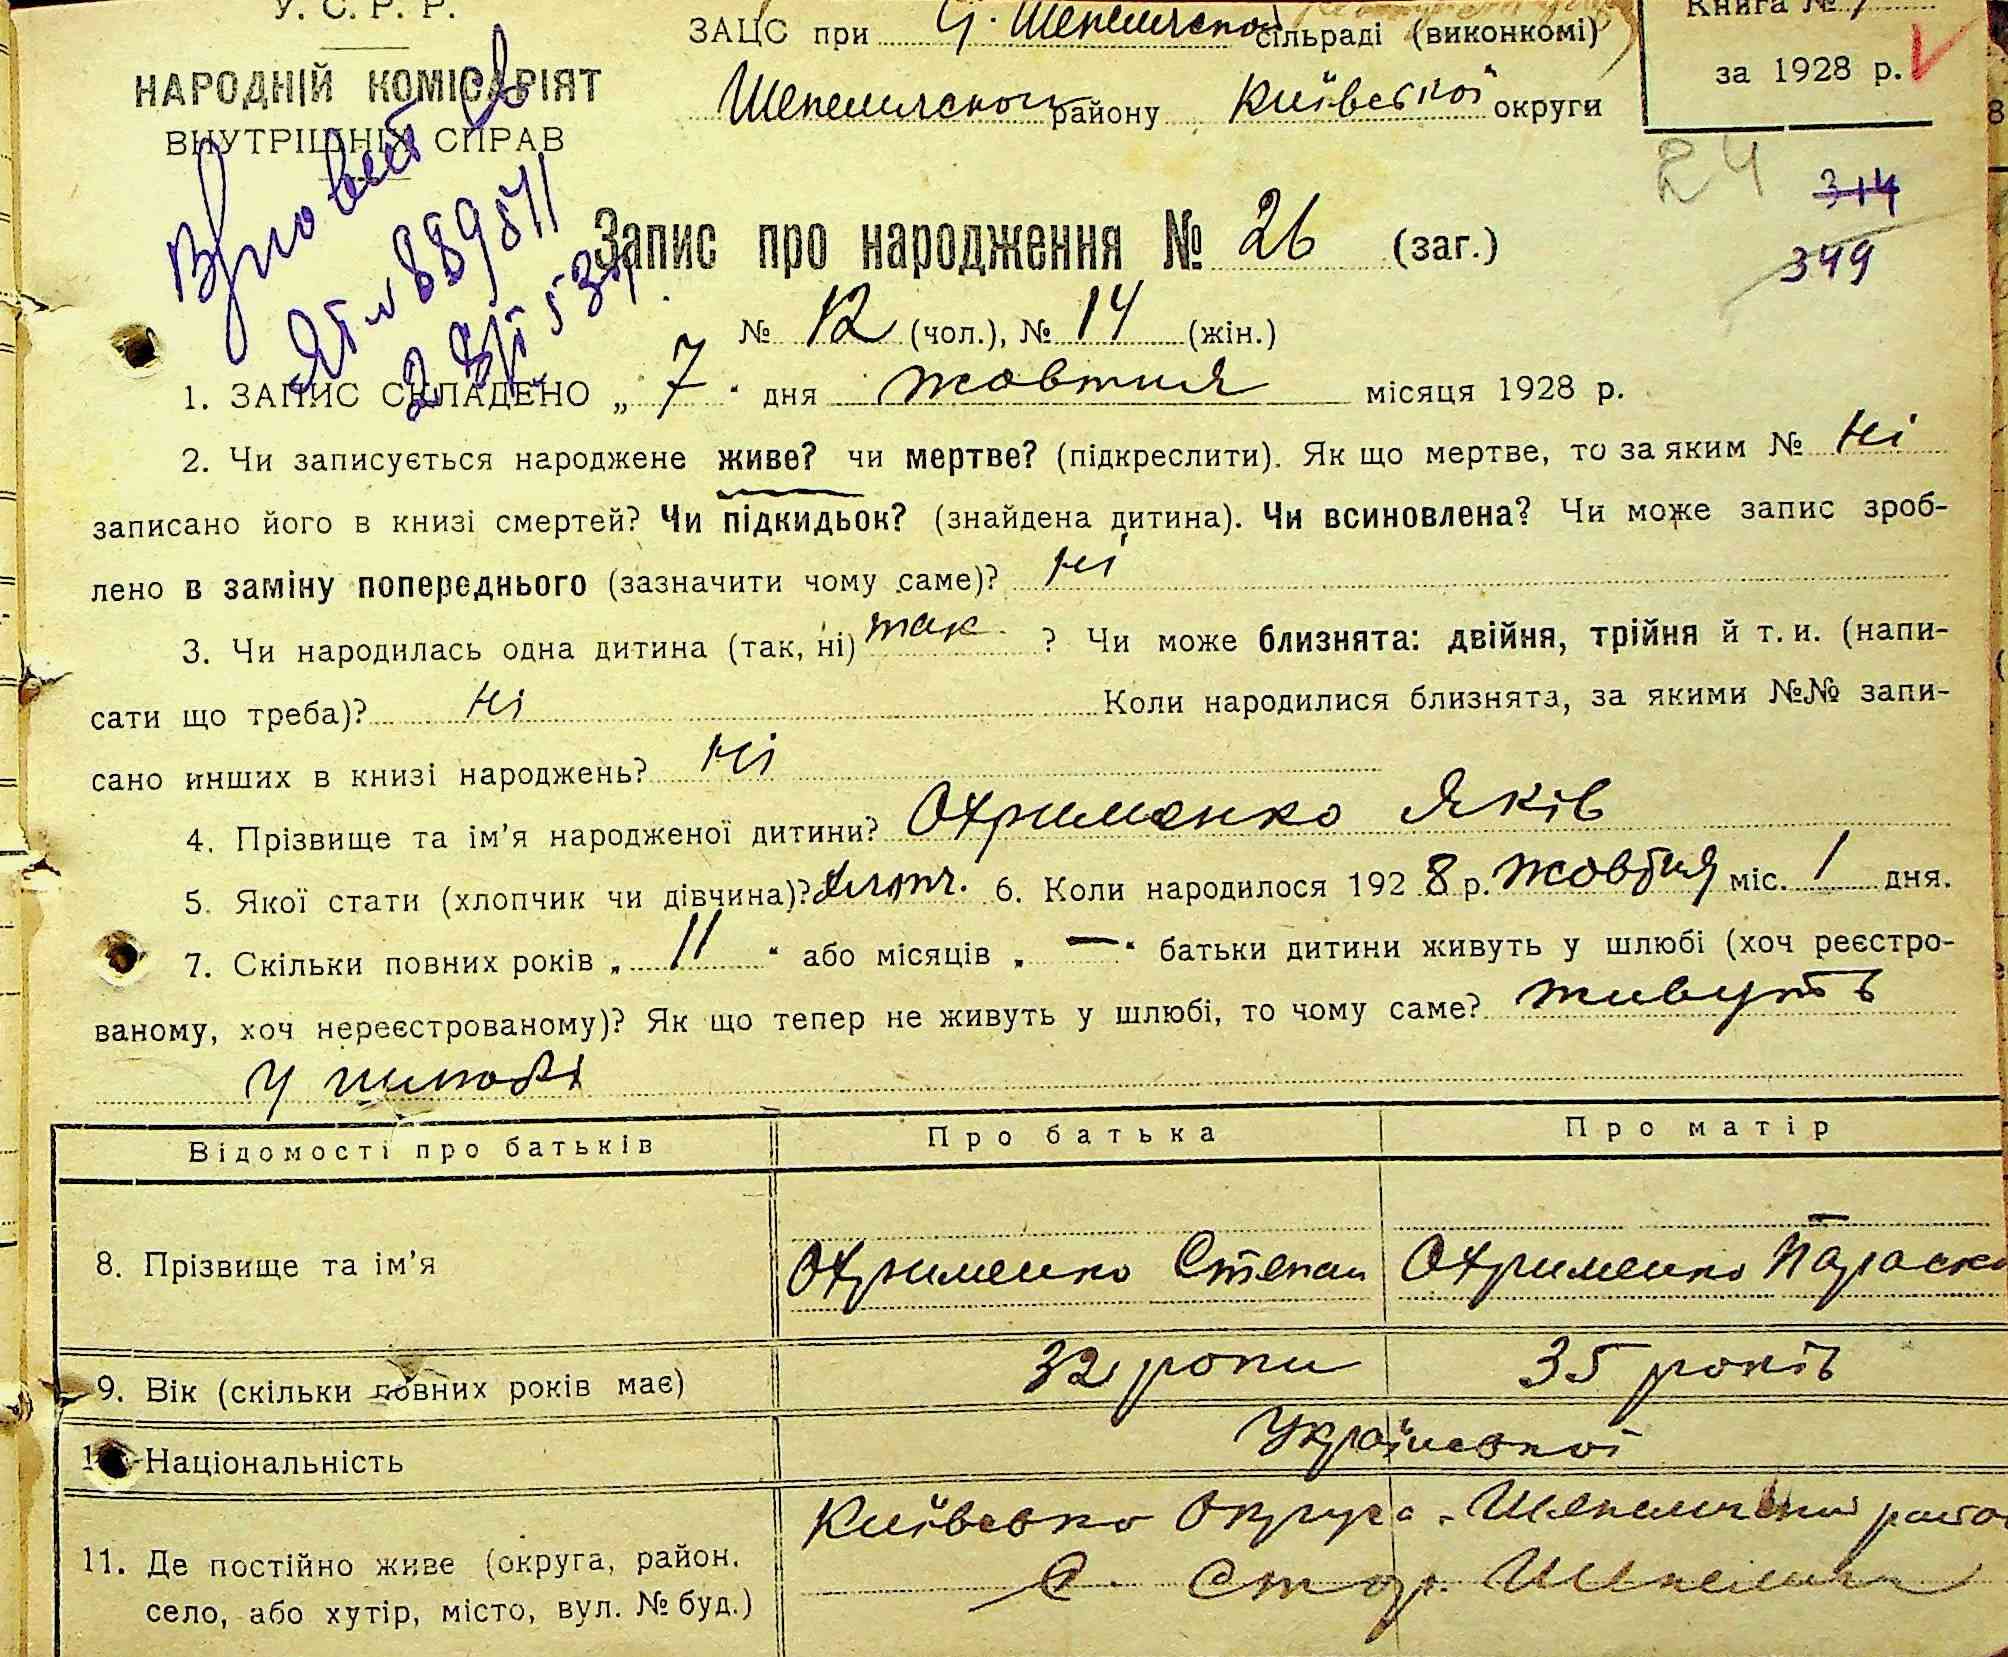 У. С. Р. Р.
НАРОДНІЙ КОМІСАРІЯТ
ВНУТРІШНІХ СПРАВ
ЗАЦС при С. Шепелической сільраді (виконкомі)
Шепелическом району Київської округи
Книга № 1
за 1928 р.
24
314
349
ЯТ № 889511
Запис про народження № 26 (заг.)
№ 12 (чол.), № 14 (жін.)
1. ЗАПИС СКЛАДЕНО „ 7 “ дня жовтня місяця 1928 р.
2. Чи записується народжене живе? чи мертве? (підкреслити). Як що мертве, то за яким № Ні
записано його в книзі смертей? Чи підкидьок? (знайдена дитина). Чи всиновлена? Чи може запис зроб-
лено в заміну попереднього (зазначити чому саме)? Ні
3. Чи народилась одна дитина (так, ні) так. ? Чи може близнята: двійня, трійня й т. и. (напи-
сати що треба)? Ні Коли народилися близнята, за якими №№ запи-
сано инших в книзі народжень? Ні
4. Прізвище та ім’я народженої дитини? Охрименко Яків
5. Якої стати (хлопчик чи дівчина)? хлопч. 6. Коли народилося 192 8 р. жовтня міс. 1 дня.
7. Скільки повних років „ 11 “ або місяців „ — “ батьки дитини живуть у шлюбі (хоч реєстро-
ваному, хоч нереєстрованому)? Як що тепер не живуть у шлюбі, то чому саме? живуть
у шлюбі
Відомості про батьків Про батька Про матір
8. Прізвище та ім’я Охрименко Степан Охрименко Параска
9. Вік (скільки повних років має) 32 роки 35 років
Національність Української
11. Де постійно живе (округа, район, Київсько Округа
село, або хутір, місто, вул. № буд.) С. Стар. Шепеличи